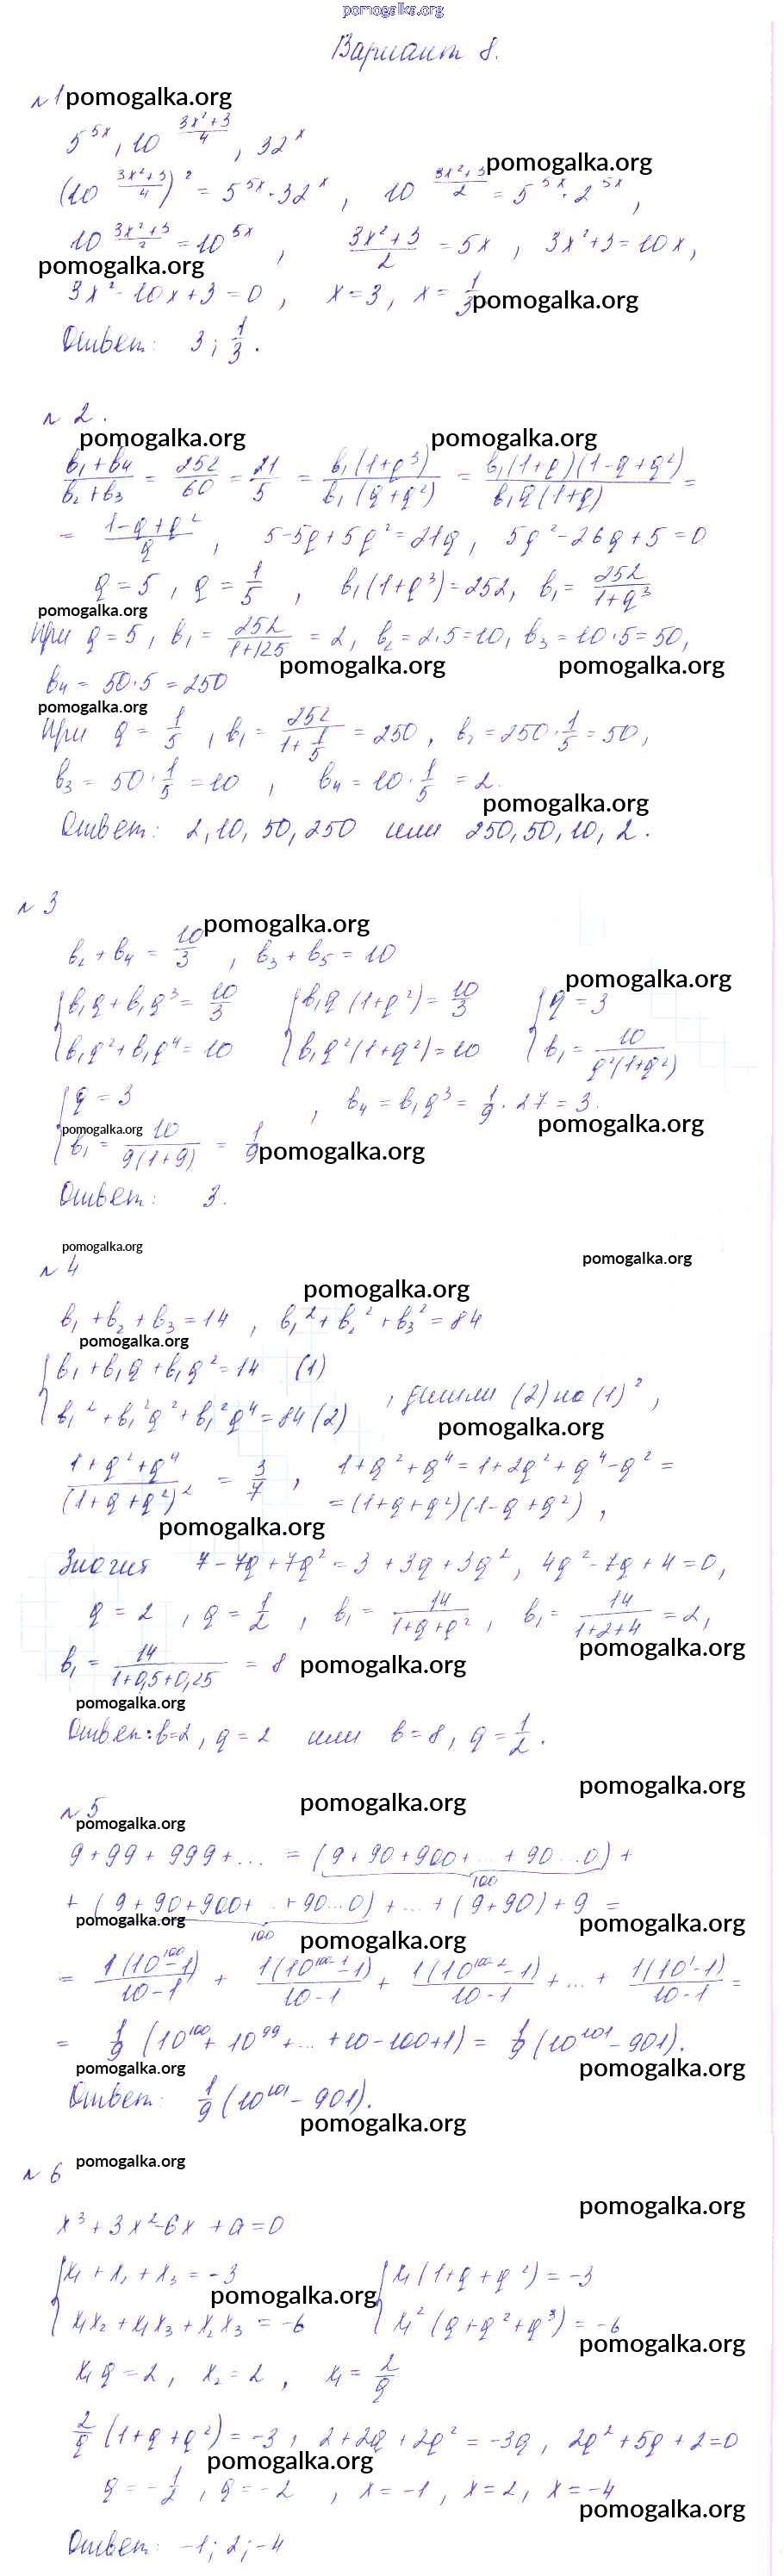 pomogalka.org
Вариант 8.
№1 pomogalka.org
5^{5x}, 10^{\frac{3x²+3}{4}}, 32^x
pomogalka.org
(10^{\frac{3x²+3}{4}})² = 5^{5x}·32^x, 10^{\frac{3x²+3}{2}} = 5^{5x}·2^{5x},
10^{\frac{3x²+3}{2}} = 10^{5x}, \frac{3x²+3}{2} = 5x, 3x²+3=10x,
pomogalka.org
3x²-10x+3=0, x=3, x=\frac{1}{3} pomogalka.org
Ответ: 3; \frac{1}{3}.
№2.
pomogalka.org pomogalka.org
\frac{b₁+b₄}{b₂+b₃} = \frac{252}{60} = \frac{21}{5} = \frac{b₁(1+q³)}{b₁(q+q²)} = \frac{b₁(1+q)(1-q+q²)}{b₁q(1+q)} =
= \frac{1-q+q²}{q}, 5-5q+5q²=21q, 5q²-26q+5=0
q=5, q=\frac{1}{5}, b₁(1+q³)=252, b₁=\frac{252}{1+q³}
pomogalka.org
При q=5, b₁=\frac{252}{1+125}=2, b₂=2·5=10, b₃=10·5=50,
pomogalka.org pomogalka.org
b₄=50·5=250
pomogalka.org
При q=\frac{1}{5}, b₁=\frac{252}{1+\frac{1}{5}}=250, b₂=250·\frac{1}{5}=50,
b₃=50·\frac{1}{5}=10, b₄=10·\frac{1}{5}=2.
pomogalka.org
Ответ: 2, 10, 50, 250 или 250, 50, 10, 2.
№3
pomogalka.org
b₂+b₄=\frac{10}{3}, b₃+b₅=10
pomogalka.org
{b₁q+b₁q³=\frac{10}{3} {b₁q(1+q²)=\frac{10}{3} {q=3
{b₁q²+b₁q⁴=10 {b₁q²(1+q²)=10 {b₁=\frac{10}{q²(1+q²)}
{q=3, b₄=b₁q³=\frac{1}{9}·27=3.
pomogalka.org pomogalka.org
{b₁=\frac{10}{9(1+9)}=\frac{1}{9} pomogalka.org
Ответ: 3.
pomogalka.org pomogalka.org
№4
pomogalka.org
b₁+b₂+b₃=14, b₁²+b₂²+b₃²=84
pomogalka.org
{b₁+b₁q+b₁q²=14 (1)
{b₁²+b₁²q²+b₁²q⁴=84 (2), делим (2) на (1)²,
pomogalka.org
\frac{1+q²+q⁴}{(1+q+q²)²}=\frac{3}{7}, 1+q²+q⁴=1+2q²+q⁴-q²=
=(1+q+q²)(1-q+q²),
pomogalka.org
Значит 7-7q+7q²=3+3q+3q², 4q²-7q+4=0,
q=2, q=\frac{1}{2}, b₁=\frac{14}{1+q+q²}, b₁=\frac{14}{1+2+4}=2,
pomogalka.org
b₁=\frac{14}{1+0,5+0,25}=8 pomogalka.org
pomogalka.org
Ответ: b=2, q=2 или b=8, q=\frac{1}{2}.
pomogalka.org
№5 pomogalka.org
pomogalka.org
9+99+999+... = (9+90+900+...+90...0)+
100
+(9+90+900+...+90...0)+...+(9+90)+9=
pomogalka.org pomogalka.org
100 pomogalka.org
= \frac{1(10^{100}-1)}{10-1} + \frac{1(10^{100-1}-1)}{10-1} + \frac{1(10^{100-2}-1)}{10-1} +...+ \frac{1(10^1-1)}{10-1} =
= \frac{1}{9}(10^{100}+10^{99}+...+10-100+1) = \frac{1}{9}(10^{101}-901).
pomogalka.org pomogalka.org
Ответ: \frac{1}{9}(10^{101}-901).
pomogalka.org
№6 pomogalka.org
pomogalka.org
x³+3x²-6x+a=0
{x₁+x₂+x₃=-3 {x₁(1+q+q²)=-3
pomogalka.org
{x₁x₂+x₁x₃+x₂x₃=-6 {x₁²(q+q²+q³)=-6
pomogalka.org
x₁q=2, x₂=2, x₁=\frac{2}{q}
\frac{2}{q}(1+q+q²)=-3, 2+2q+2q²=-3q, 2q²+5q+2=0
pomogalka.org
q=-\frac{1}{2}, q=-2, x=-1, x=2, x=-4
pomogalka.org
Ответ: -1; 2; -4